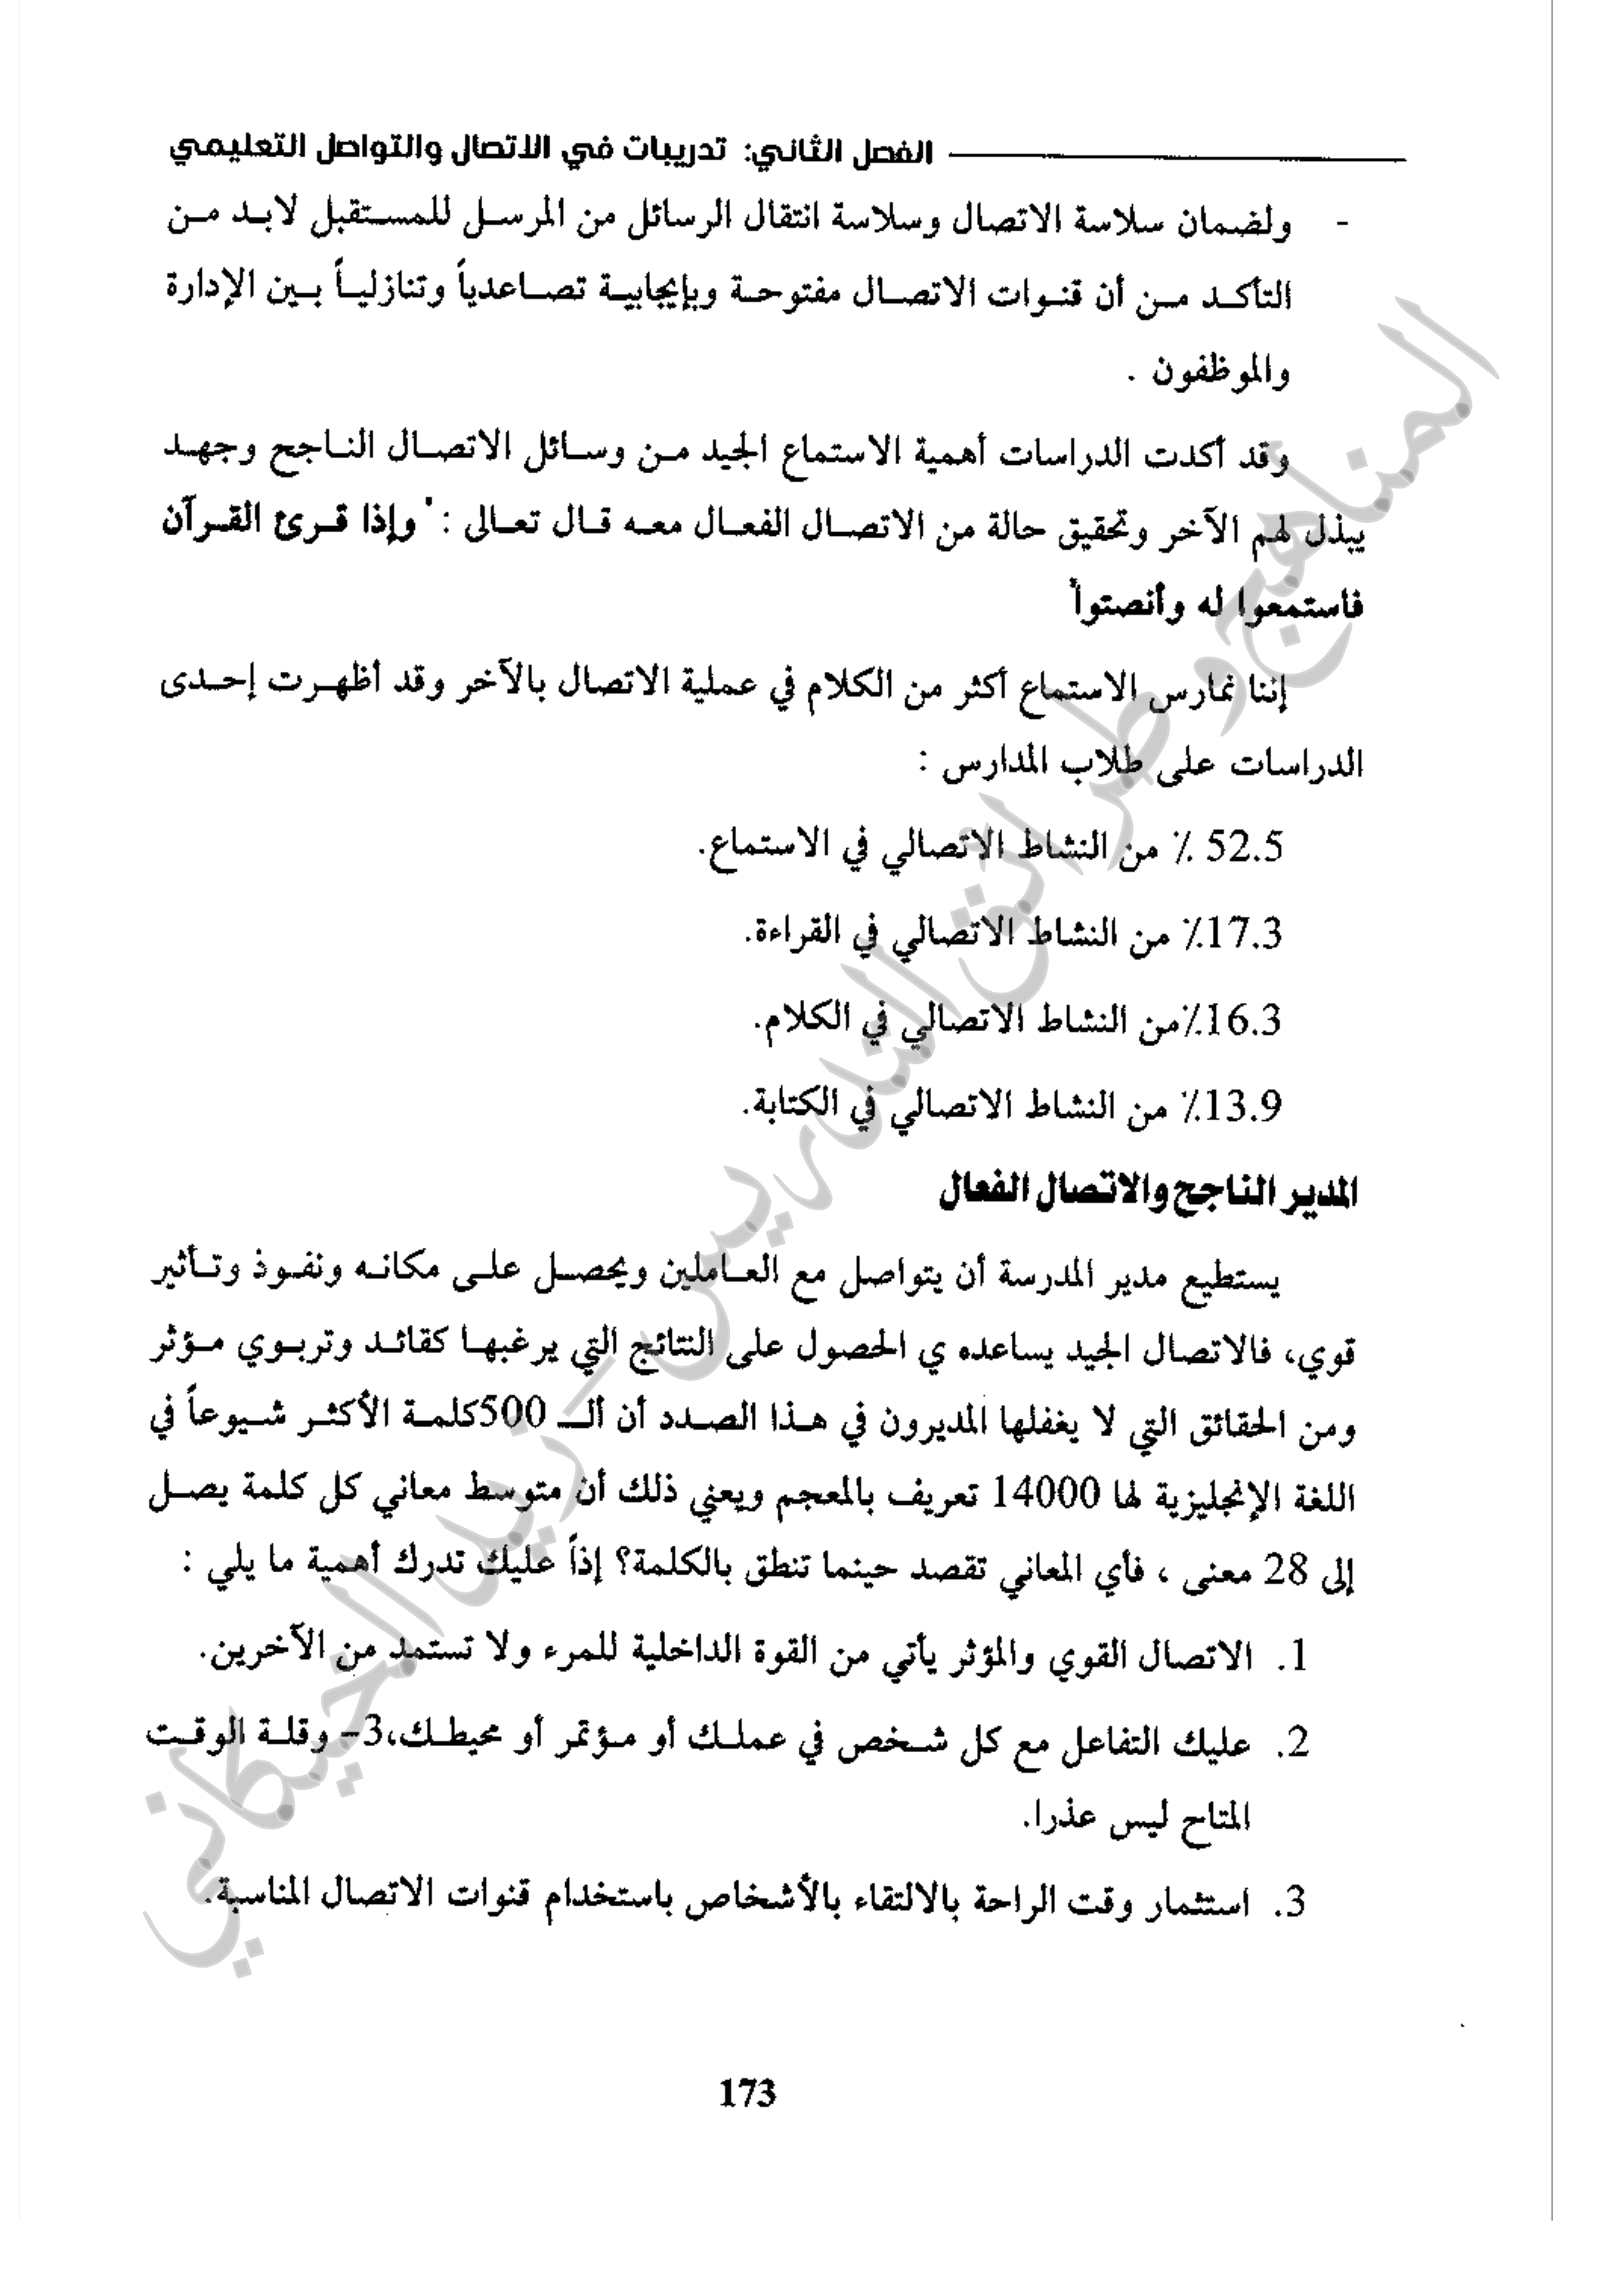 الفصل الثاني: تدريبات في الاتصال والتواصل التعليمي
- ولضمان سلاسة الاتصال وسلاسة انتقال الرسائل من المرسل للمستقبل لابد من
التأكد من أن قنوات الاتصال مفتوحة وبإيجابية تصاعدياً وتنازلياً بين الإدارة
والموظفون .
وقد أكدت الدراسات أهمية الاستماع الجيد من وسائل الاتصال الناجح وجهد
يبذل لهم الآخر وتحقيق حالة من الاتصال الفعال معه قال تعالى : " وإذا قرئ القرآن
فاستمعوا له وأنصتوا"
إننا نمارس الاستماع أكثر من الكلام في عملية الاتصال بالآخر وقد أظهرت إحدى
الدراسات على طلاب المدارس :
52.5 ٪ من النشاط الاتصالي في الاستماع.
17.3٪ من النشاط الاتصالي في القراءة.
16.3٪من النشاط الاتصالي في الكلام.
13.9٪ من النشاط الاتصالي في الكتابة.
المدير الناجح والاتصال الفعال
يستطيع مدير المدرسة أن يتواصل مع العاملين ويحصل على مكانه ونفوذ وتأثير
قوي، فالاتصال الجيد يساعده ي الحصول على النتائج التي يرغبها كقائد وتربوي مؤثر
ومن الحقائق التي لا يغفلها المديرون في هذا الصدد أن ألـ 500كلمة الأكثر شيوعاً في
اللغة الإنجليزية لها 14000 تعريف بالمعجم ويعني ذلك أن متوسط معاني كل كلمة يصل
إلى 28 معنى ، فأي المعاني تقصد حينما تنطق بالكلمة؟ إذاً عليك تدرك أهمية ما يلي :
1. الاتصال القوي والمؤثر يأتي من القوة الداخلية للمرء ولا تستمد من الآخرين.
2. عليك التفاعل مع كل شخص في عملك أو مؤتمر أو محيطك،3- وقلة الوقت
المتاح ليس عذرا.
3. استثمار وقت الراحة بالالتقاء بالأشخاص باستخدام قنوات الاتصال المناسبة.
173
المناهج وطرائق التدريس - زيد الخيكاني